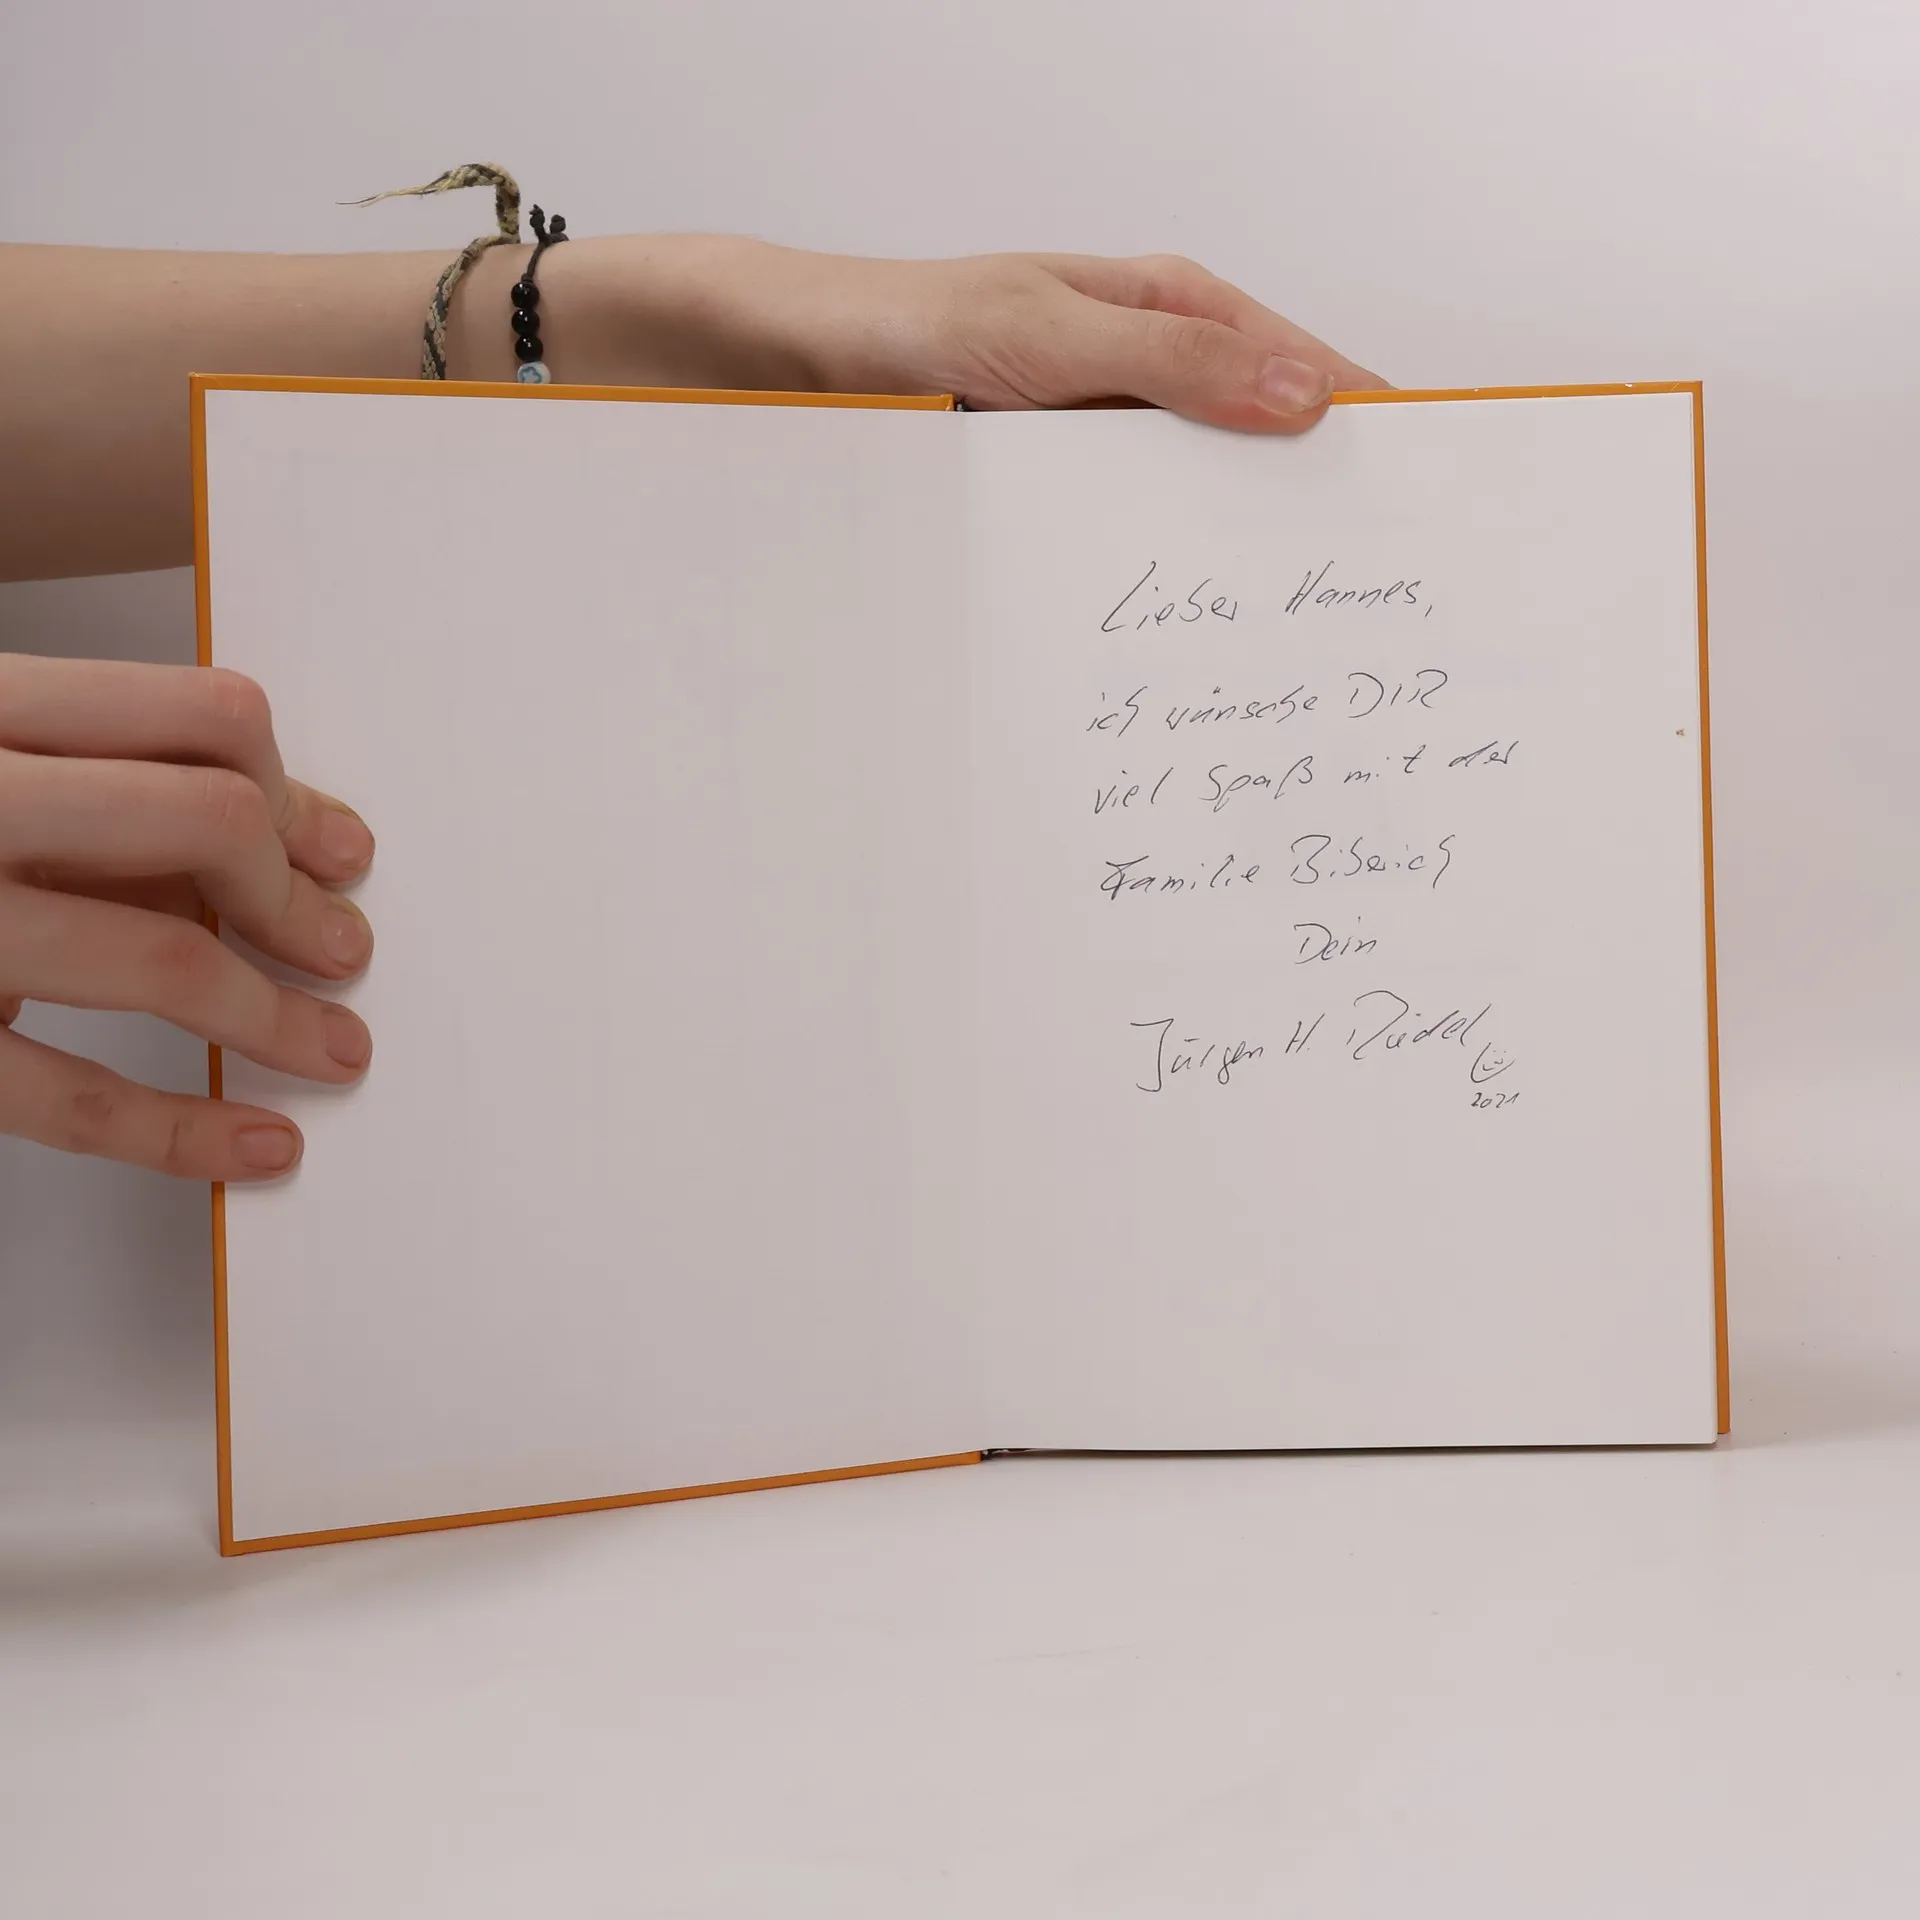 Lieber Hannes,
ich wünsche DIR
viel Spaß mit der
Familie Biberich
Dein
Jürgen H. Riedel
2021